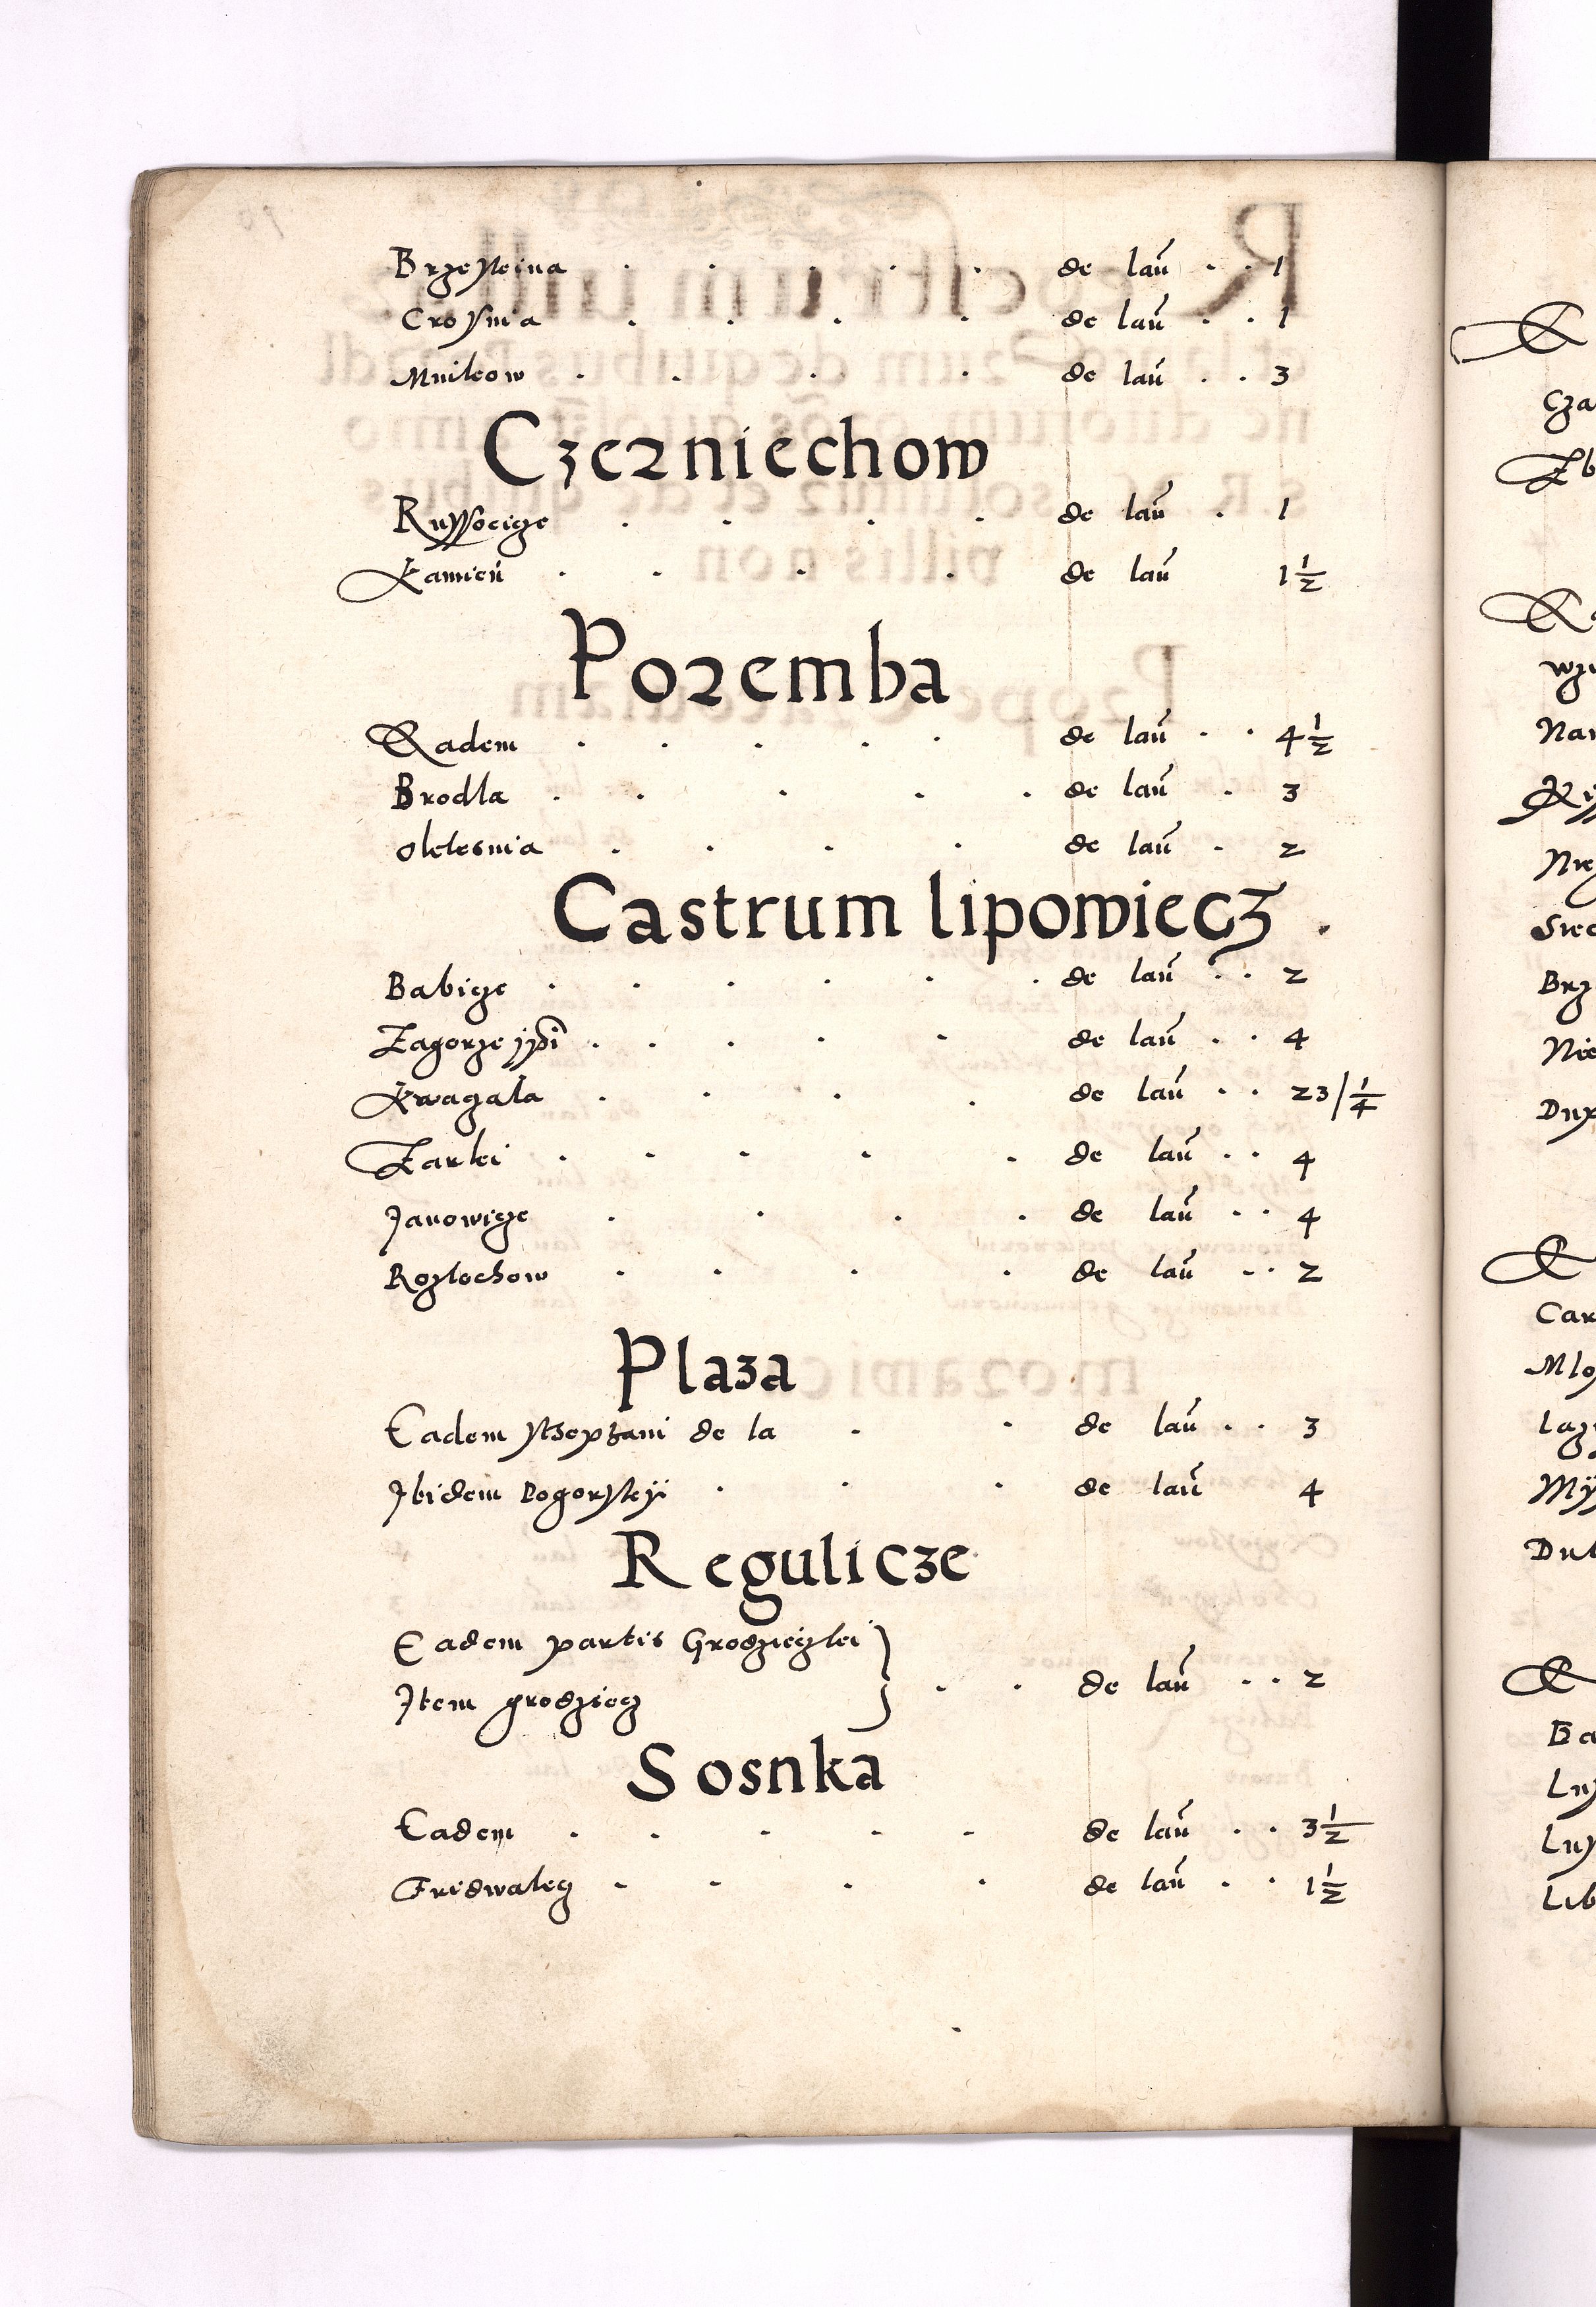 Brzeskina . . . . . de lań . . 1
Crosnia . . . . de lań . . 1
Mnikow . . . . de lań . . 3
Czerniechow
Russocicze . . . . de lań . 1
Kamień . . . . de lań 1 1/2
Poremba
Eadem . . . . . de lań . . 4 1/2
Brodla . . . . . de lań . 3
oklesnia . . . . de lań . 2
Castrum lipowiecz .
Babicze . . . . . . de lań . . 2
Zagorze . . . . . de lań . . 4
Kwagala . . . . de lań . . 23/ 1/4
Zarki . . . . . de lań . . 4
Janowicze . . . . de lań . . 4
Rozkochow . . . . de lań . . 2
Plaza
Eadem de la . . de lań . . 3
Ibidem Pogorskii . . . de lań 4
Regulicze
Eadem partis Grodzieczkei
Item grodziecz } . . de lań . . 2
Sosnka
Eadem . . . . . de lań . . 3 1/2
Fridwaleg . . . . de lań . . 1 1/2